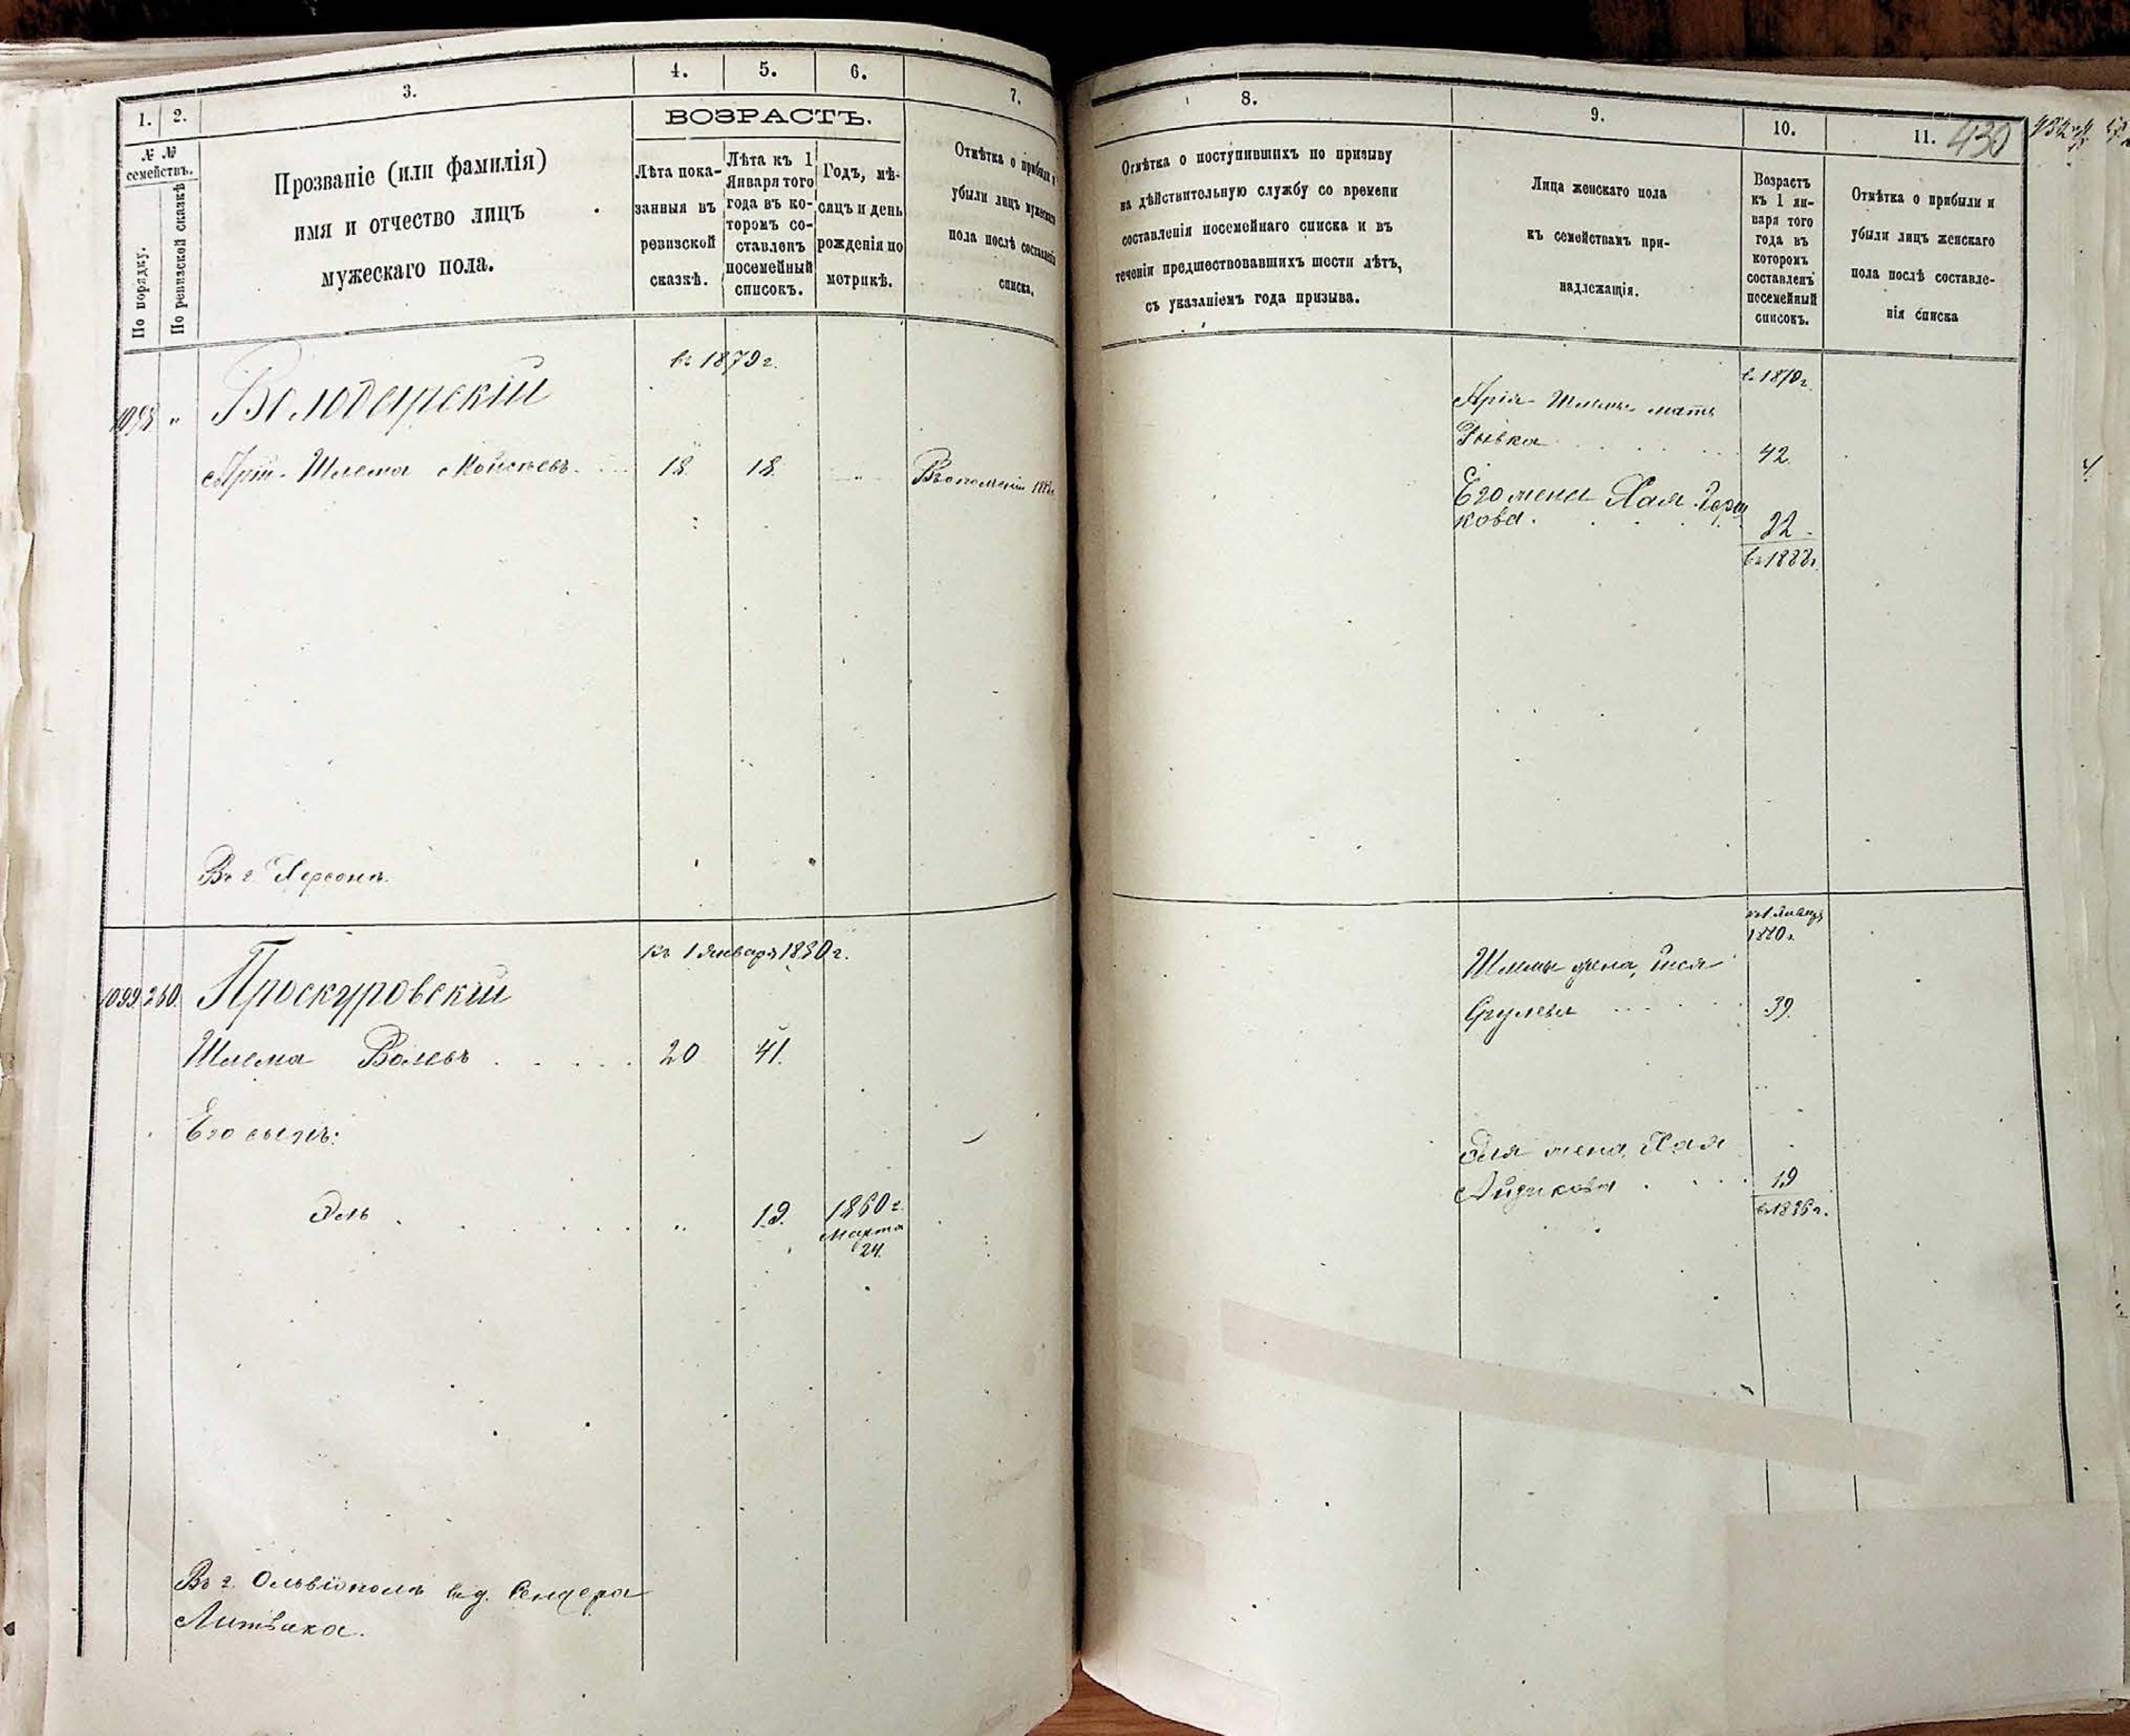 1. 2. 3. 4. 5. 6. 7.
№ №
семействъ.
По порядку.
По ревизской сказкѣ
Прозваніе (или фамилія)
имя и отчество лицъ
мужескаго пола.
ВОЗРАСТЪ.
Лѣта пока-
занныя въ
ревизской
сказкѣ.
Лѣта къ 1
Января того
года въ ко-
торомъ со-
ставленъ
посемейный
списокъ.
Годъ, мѣ-
сяцъ и день
рожденія по
метрикѣ.
Отмѣтка о прибыли и
убыли лицъ мужескаго
пола послѣ составленія
списка.
въ 1879 г.
1098 "
Володарскій
Арій-Шлема Мойсеевъ 18 18
Въ г. Херсонѣ.
къ 1 Января 1880 г.
1099 260. Проскуровскій
Шлема Волевъ 20 41.
Его сынъ:
Эль " 19. 1860 г.
Марта
24.
Въ г. Ольвіополѣ въ д. Сендера
Литвака.
8. 9. 10. 11. 430
Отмѣтка о поступившихъ по призыву
на дѣйствительную службу со времени
составленія посемейнаго списка и въ
теченіи предшествовавшихъ шести лѣтъ,
съ указаніемъ года призыва.
Лица женскаго пола
къ семействамъ при-
надлежащія.
Возрастъ
къ 1 ян-
варя того
года въ
которомъ
составленъ
посемейный
списокъ.
Отмѣтка о прибыли и
убыли лицъ женскаго
пола послѣ составле-
нія списка
Арія-Шлемы мать
Рывка 42
Его жена Хая Герш
кова. 22
въ 1888 г.
1880 г.
Шлемы жена,
Срулева 39.
Эля жена, Хая
Айзикова 19